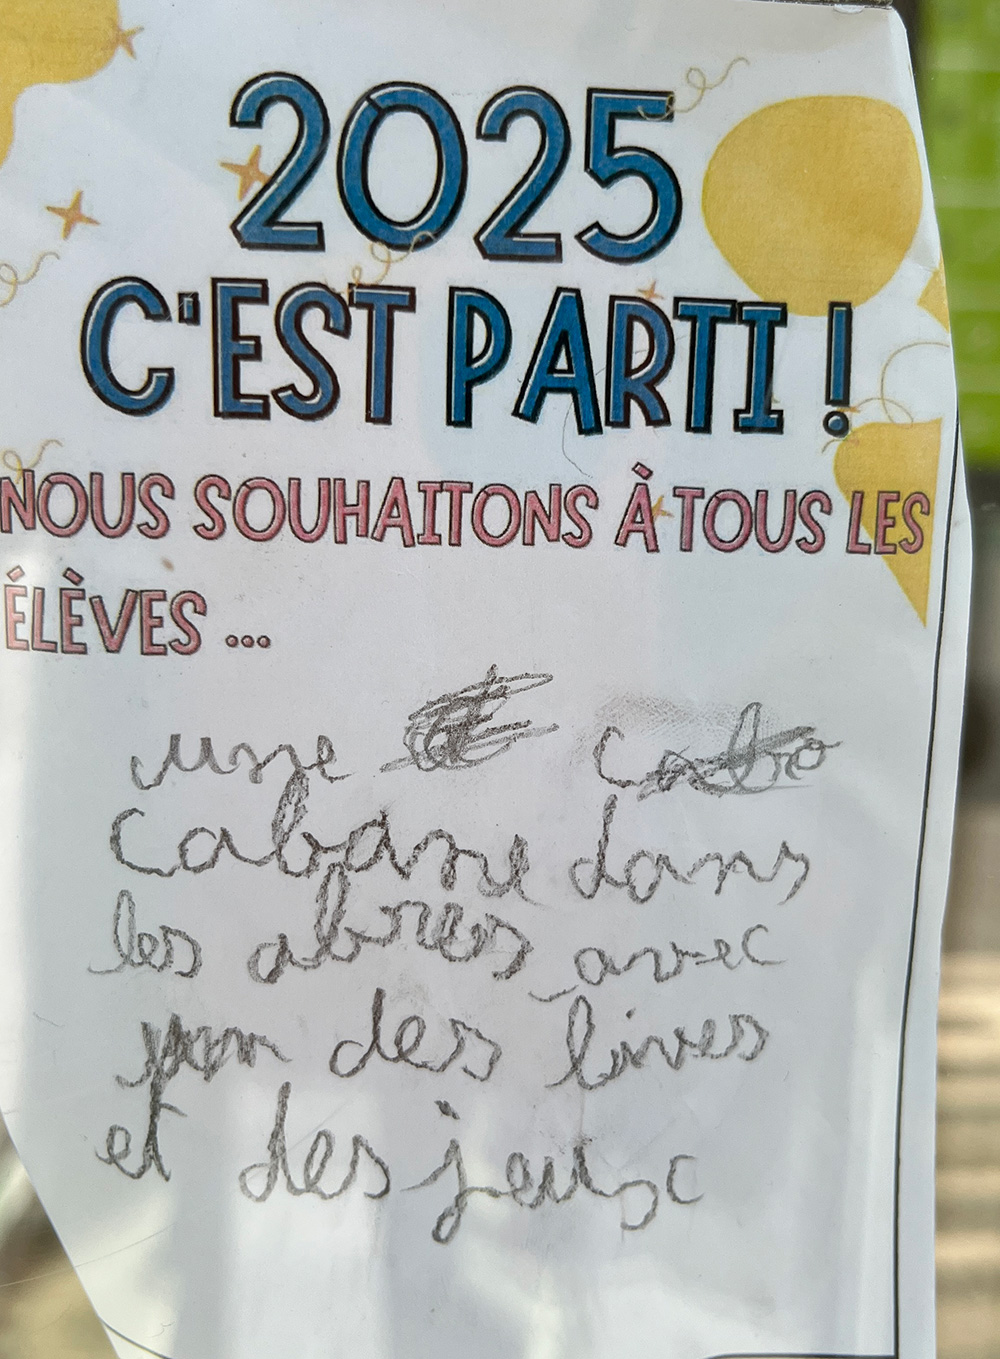 2025
C'EST PARTI !
NOUS SOUHAITONS À TOUS LES
ÉLÈVES ...
une
cabane dans
les abres avec
des livres
et des jeux